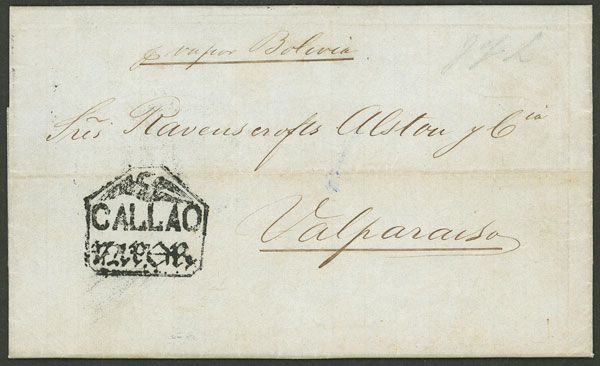 p vapor Bolivia
Sres Ravenscrofts Alston y Cia
CALLAO
VAPOR.
Valparaiso